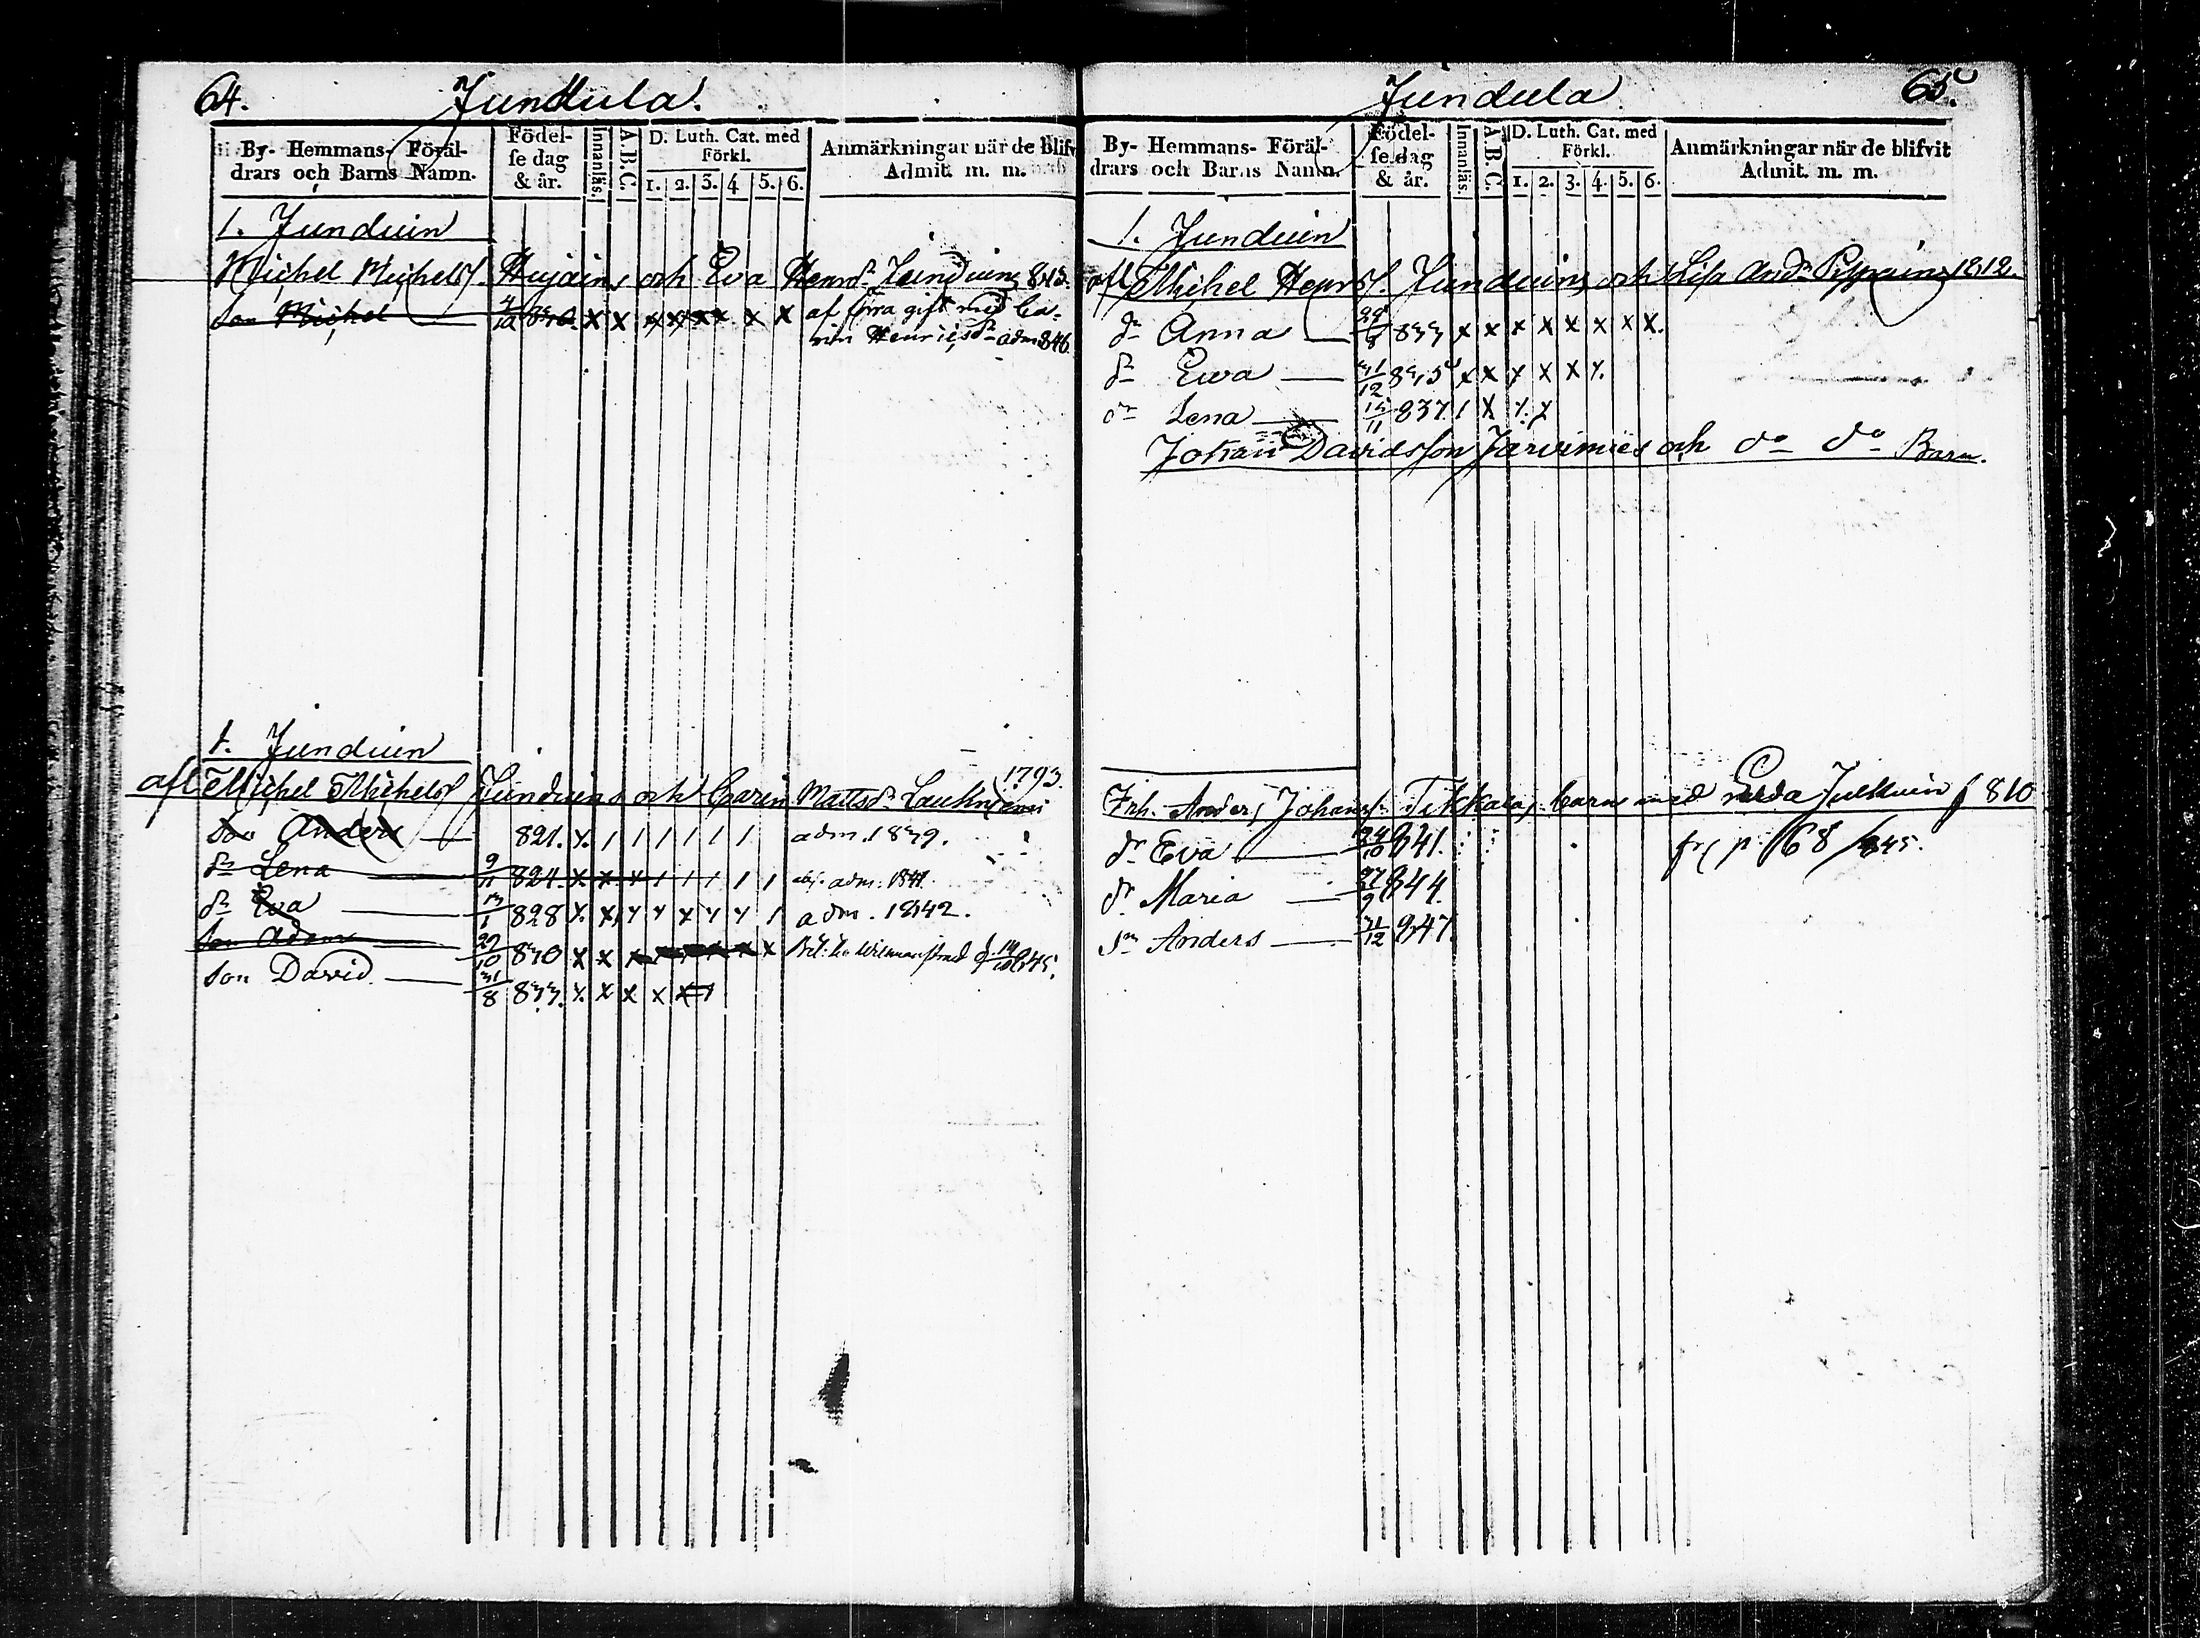 64. Junduila.
By- Hemmans- Föräl-
drars och Barns Namn.
Födel-
se dag
& år.
Innanläs.
A.B.C.
D. Luth. Cat. med
Förkl.
1. 2. 3. 4 5. 6.
Anmärkningar när de blifv
Admit. m. m.
1. Junduin
Michel Michelss. Hujains och Eva Henrsdr Junduin 813.
son Michel 4/10 830 x x x x x x x x af förra gift med Ca-
rin Henricsdr adm 846.
1. Junduin
afl Michel Michelss Junduins och Carin Mattsdr 1793.
son Anders 821. x. 1 1 1 1 1 1 adm. 1839.
dr Lena 9/11 824. x. x. x 1 1 1 1 1 adm. 1841.
dr Eva 13/1 828 x. x x x x x x 1 adm. 1842.
son Adam 29/10 830 x x x x x x x x
son David 31/8 833. x. x x x x 1
65. Jundula
By- Hemmans- Föräl-
drars och Barns Namn.
Födel-
se dag
& år.
Innanläs.
A.B.C.
D. Luth. Cat. med
Förkl.
1. 2. 3. 4. 5. 6.
Anmärkningar när de blifvit
Admit. m. m.
1. Junduin
afl Michel Henrss. Junduins och Lisa Andr 1812.
dr Anna 833 x x x x x x x x.
dr Ewa 31/12 835 x x x x x x.
dr Lena 15/11 837 1 x x. x
Johan Davidsson Järvimies och do do Barn.
Inh. Anders Johanss. Tikkala, barn med Julkuin f 810
dr Eva 24/10 841. fr p. 68 /845.
dr Maria 27/9 844.
sn Anders 31/12 847.